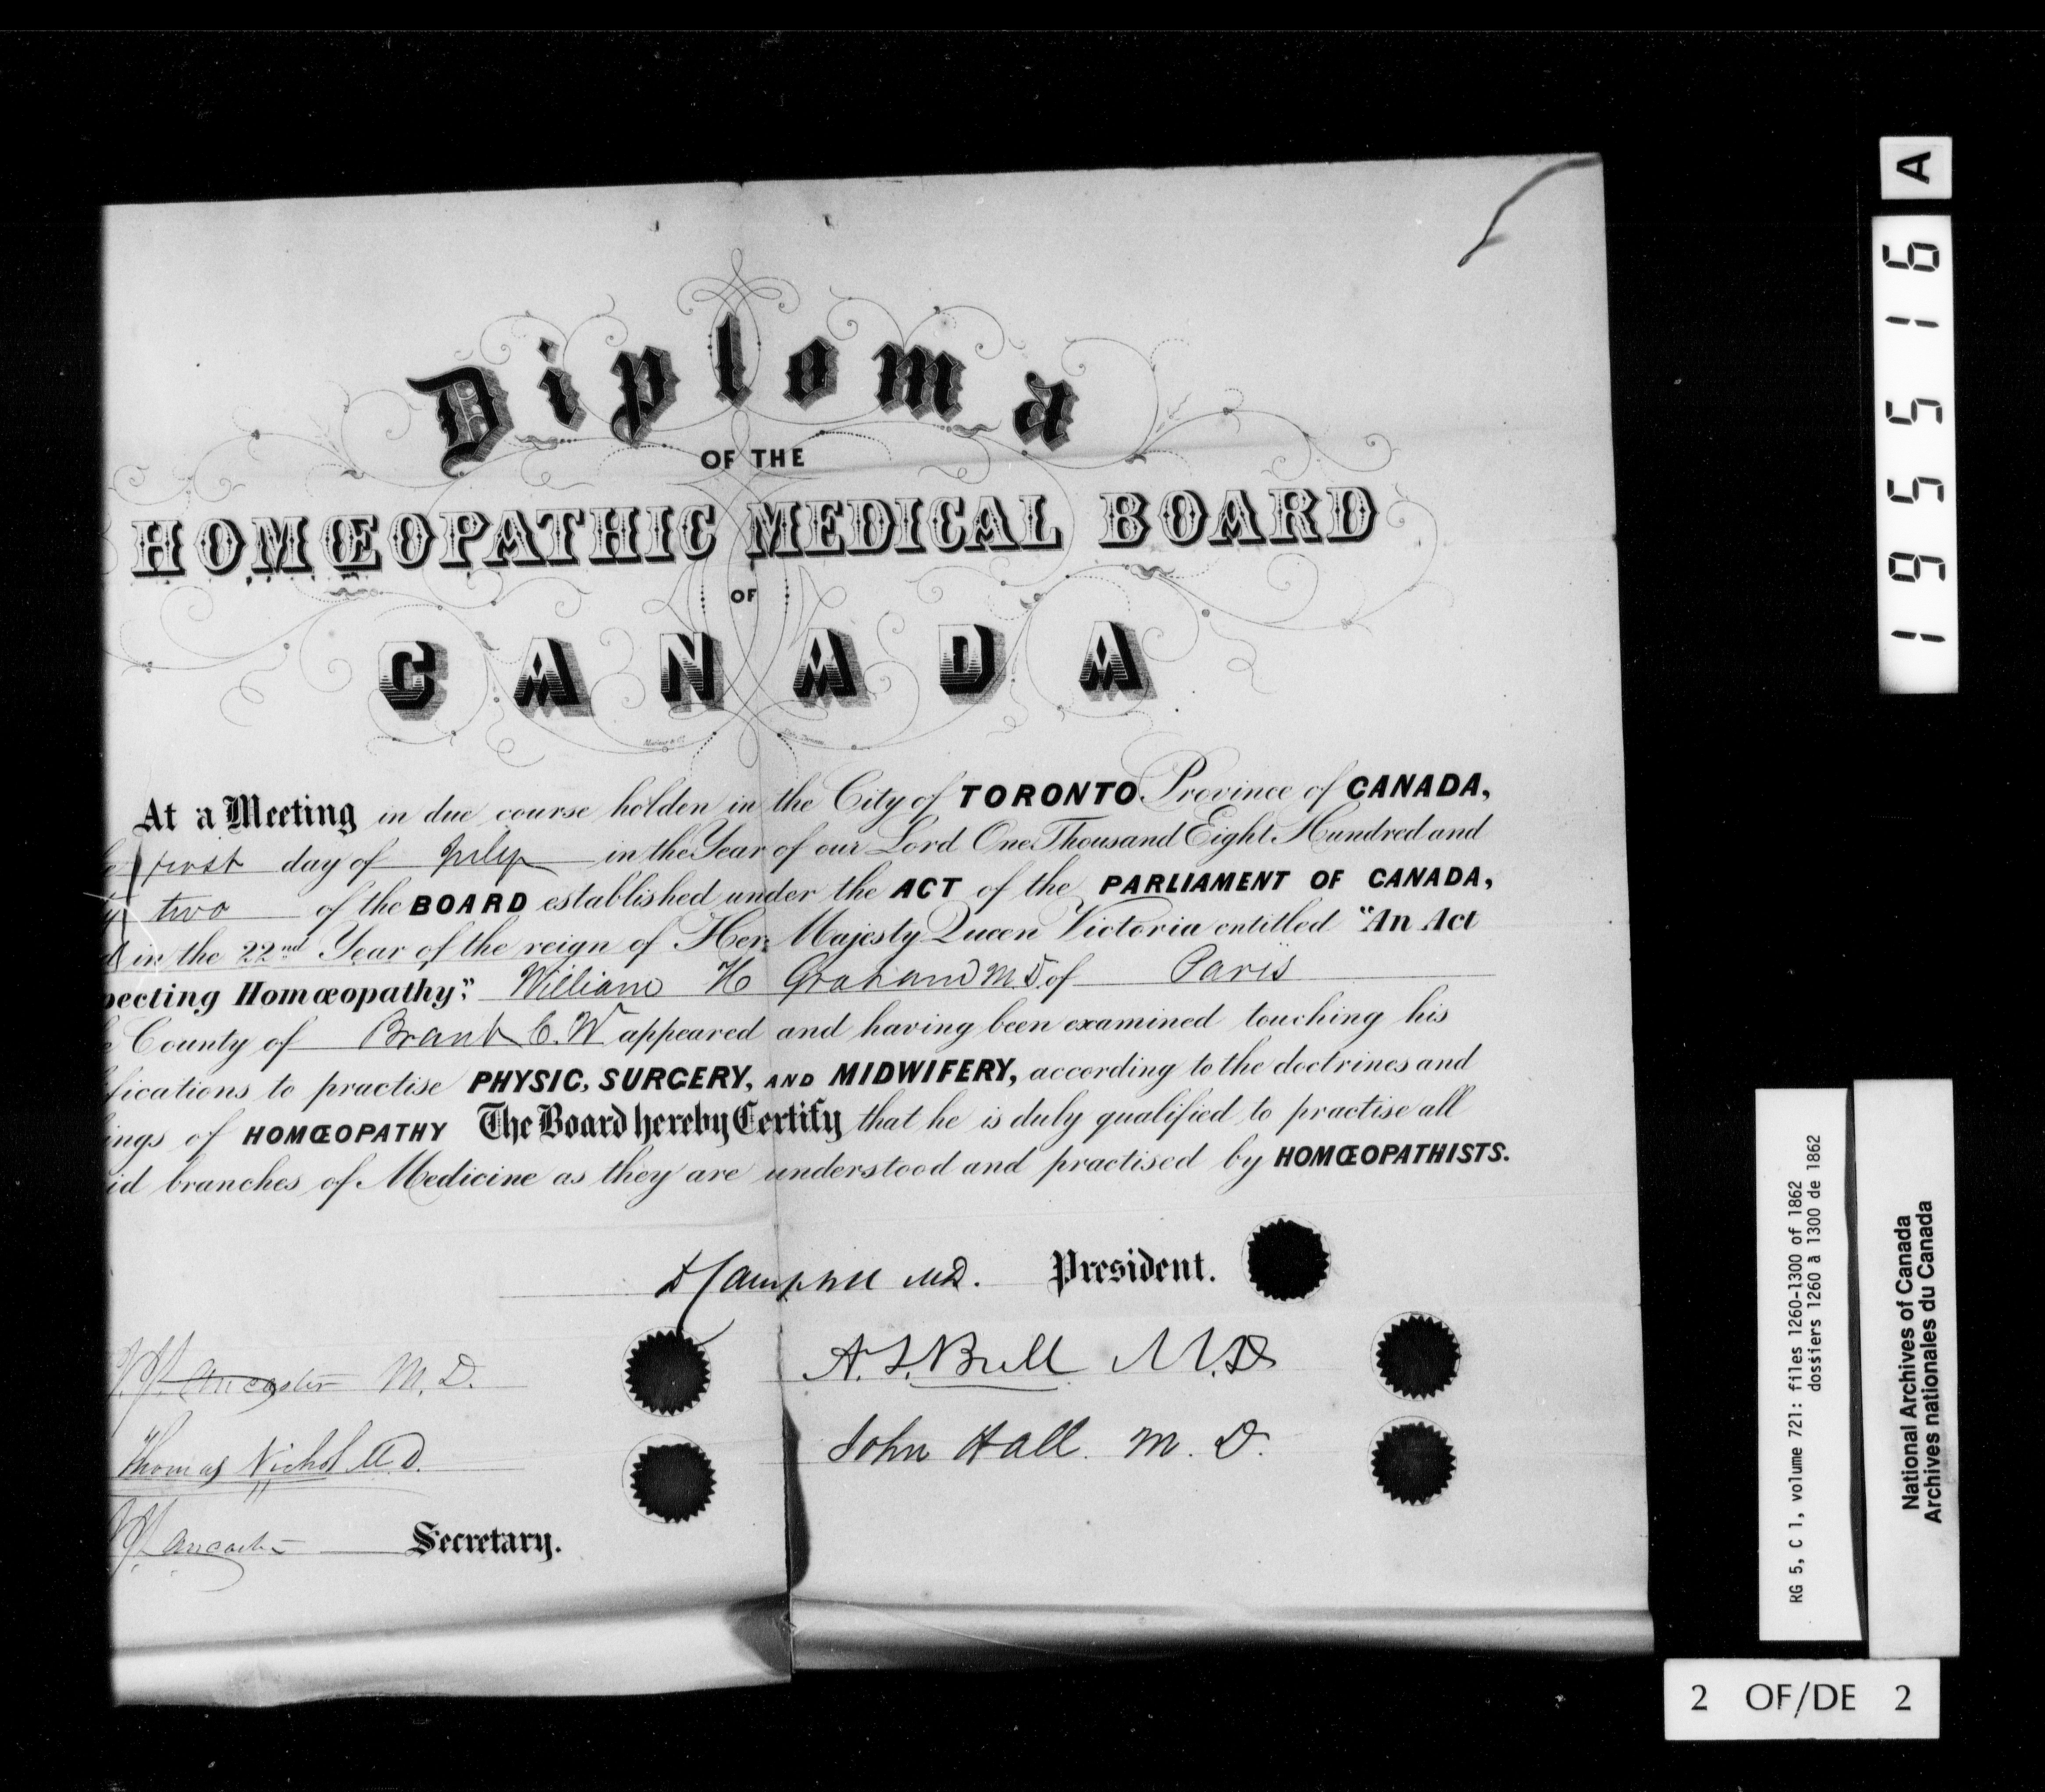 Diploma
OF THE
HOMŒOPATHIC MEDICAL BOARD
OF
CANADA
At a Meeting in due course holden in the City of TORONTO Province of CANADA,
first day of July in the Year of our Lord One Thousand Eight Hundred and
two of the BOARD established under the ACT of the PARLIAMENT OF CANADA,
in the 22nd Year of the reign of Her Majesty Queen Victoria entitled "An Act
pecting Homœopathy." William H Graham M.D. of Paris
County of Brant C.W appeared and having been examined touching his
fications to practise PHYSIC, SURGERY, AND MIDWIFERY, according to the doctrines and
ings of HOMŒOPATHY The Board hereby Certify that he is duly qualified to practise all
id branches of Medicine as they are understood and practised by HOMŒOPATHISTS.
D Campbell M.D. President.
Lancaster M.D.
A.T. Bull M.D
Thomas Nichol M.D.
John Hall. M.D.
Lancaster Secretary.
195516 A
RG 5, C 1, volume 721: files 1260-1300 of 1862
dossiers 1260 à 1300 de 1862
National Archives of Canada
Archives nationales du Canada
2 OF/DE 2